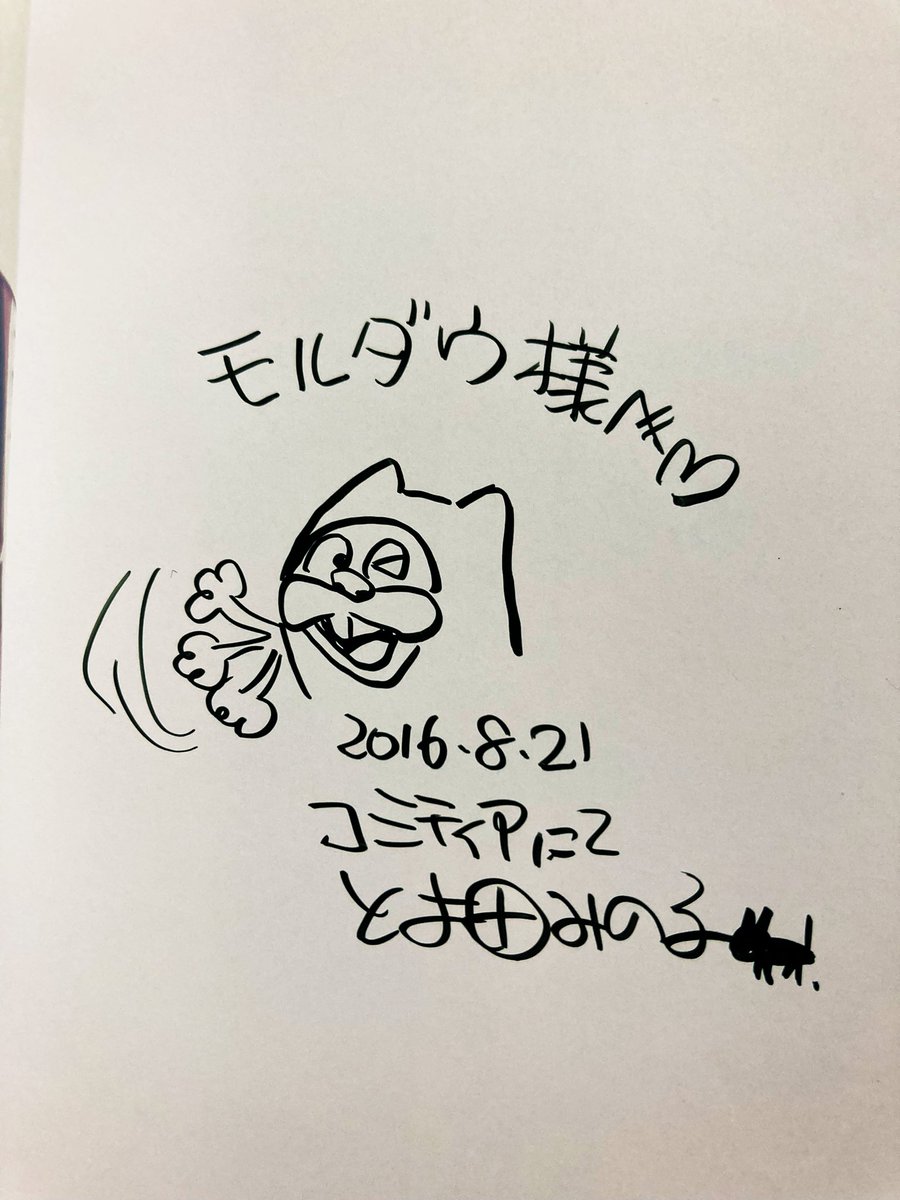 モルダウ様へ♡
2016.8.21
コミティアにて
とよ田みのる